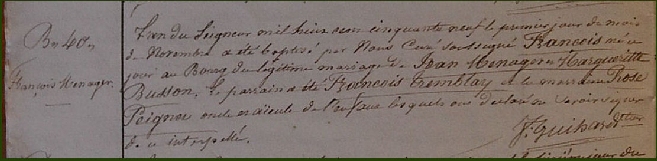 B. 40.
François Menager.
L'an du Seigneur mil huit cent cinquante neuf le premier jour du mois
de Novembre a été baptisé par Nous Curé soussigné François né ce
jour au Bourg du légitime mariage de Jean Menager et Marguerite
Busson. Le parrain a été François Tremblay et la marraine Rose
Peignée oncle et aïeule de l'enfant lesquels ont déclaré ne savoir signer
de ce interpellé.
J. Guihard